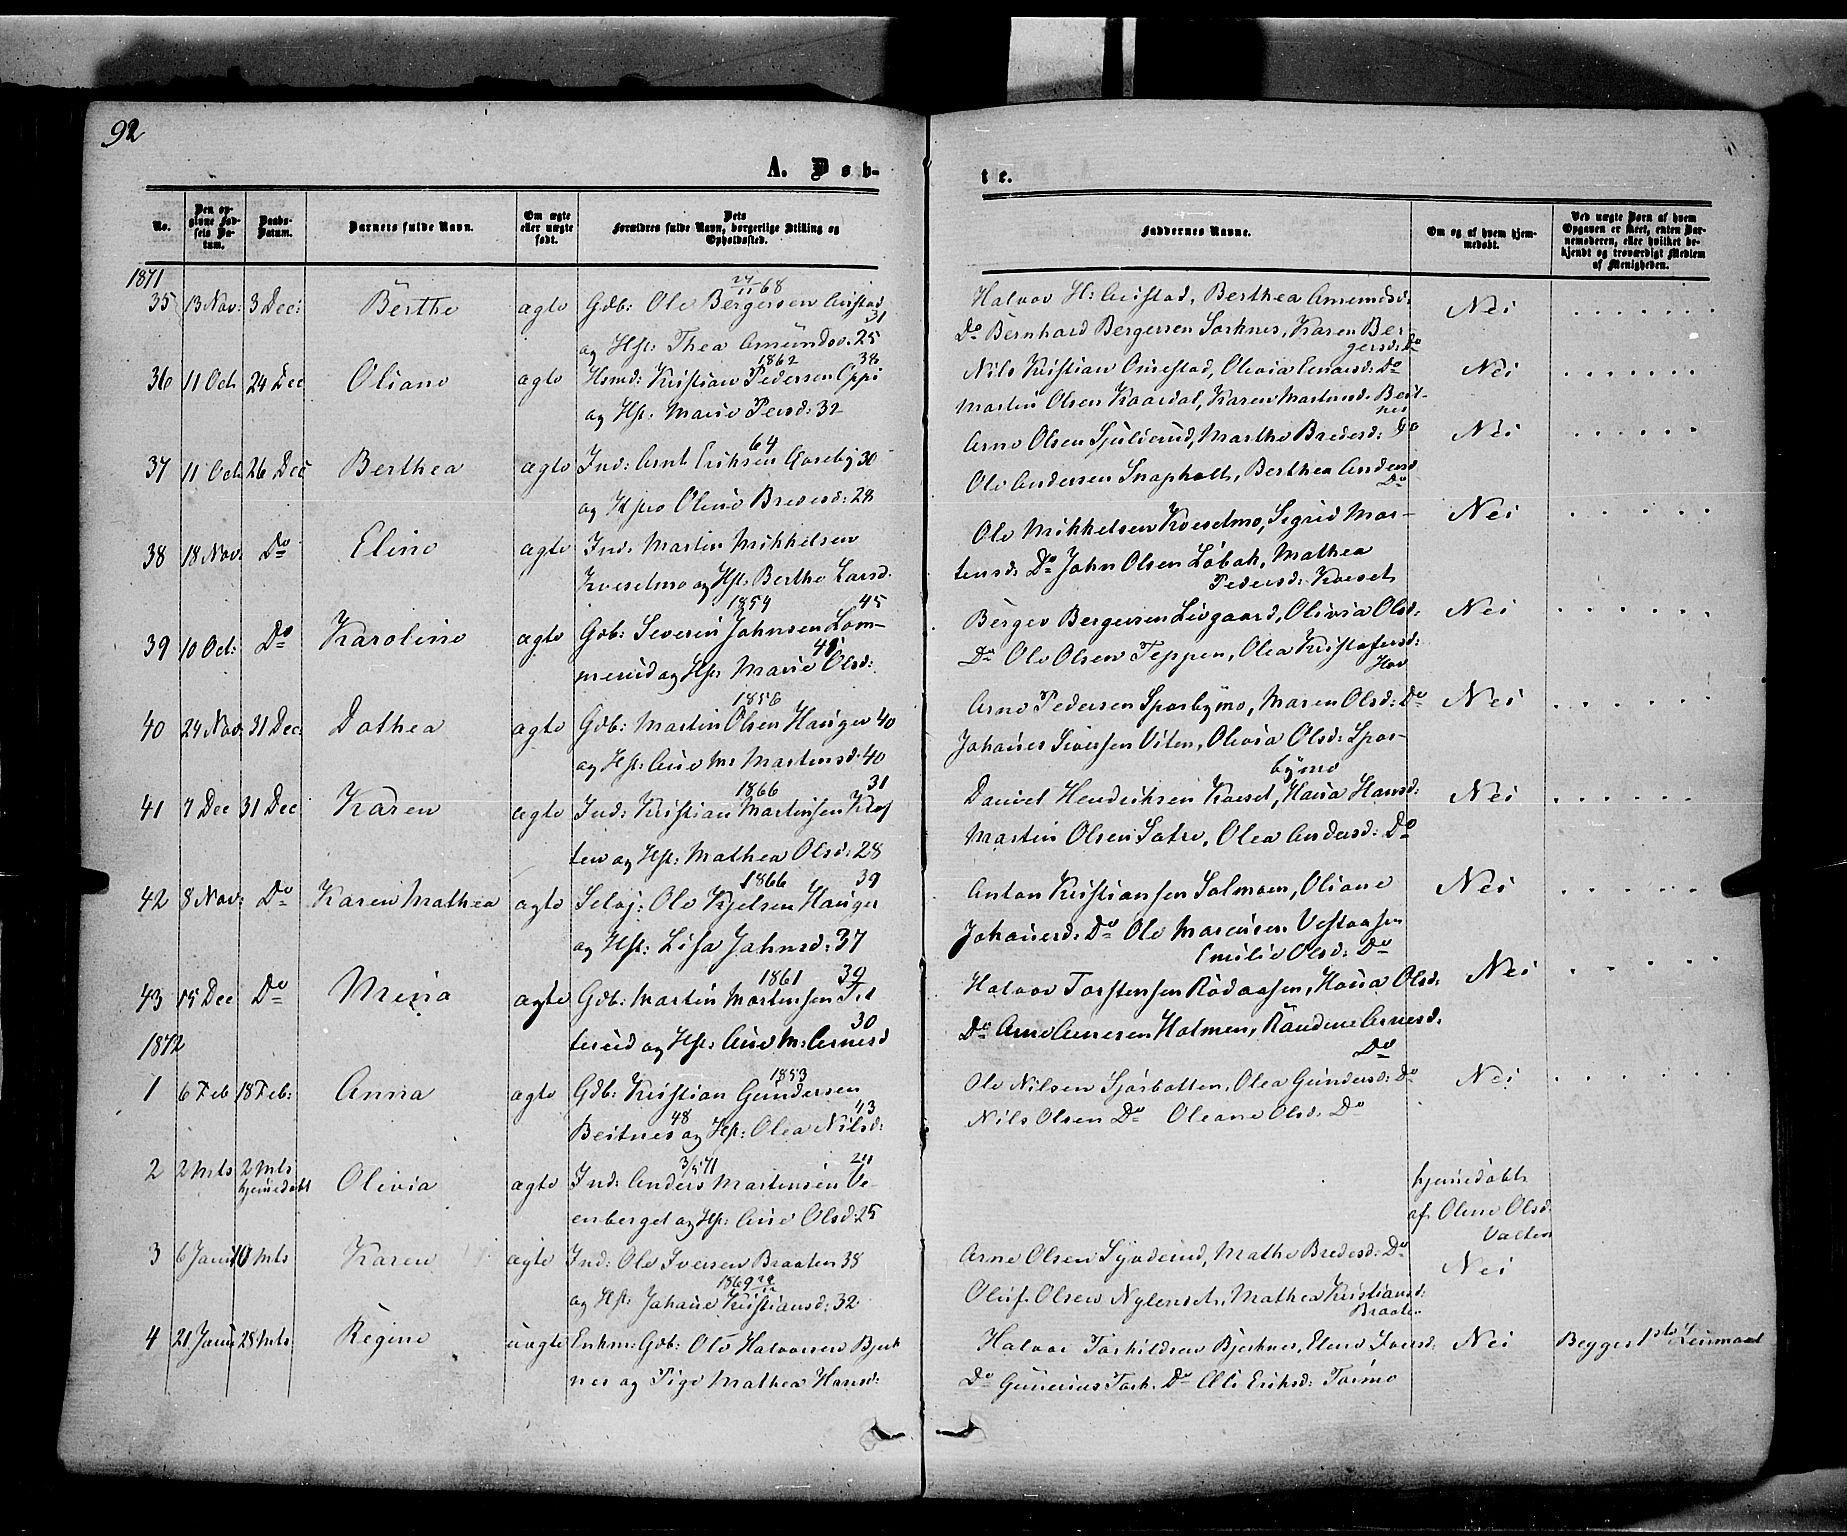 92
A. Døb-
te.
No.
Den opgivne Fødsels Datum.
Daabs-Datum.
Barnets fulde Navn.
Om ægte eller uægte født.
Forældres fulde Navn, borgerlige Stilling og Opholdssted.
Faddernes Navne.
Om og af hvem hjemmedøbt.
Ved uægte Børn af hvem Opgaven er skeet, enten Barnemoderen, eller hvilket bekjendt og troværdigt Medlem af Menigheden.
1871
35 13 Nov: 3 Dec: Berthe ægte Gdb: Ole Bergersen Austad 31
og Hst: Thea Amundsd. 25
Halvor H: Austad, Berthea Amundsd:
Do Bernhard Bergersen Sorknes, Karen Bergersd: Do
Nei
36 11 Oct 24 Dec Oliane ægte Hsmd: Kristian Pedersen Oppi
1862 38
og Hst: Marie Persd: 32
Nils Kristian Ørnestad, Olivia Do
Martin Olsen Kaardal, Karen Martinsd: Beitnes
Nei
37 11 Oct 26 Dec Berthea ægte Ind: Arnt Eriksen Gaseby 30
64
og Oline Bredesd: 28
Arne Olsen Sjulderud, Marthe Bredesd: Do
Ole Andersen Snapholt, Berthea Andersd Do
Nei
38 18 Nov: Do Eline ægte Ind: Martin Mikkelsen
Kveselmo og Hst: Berthe Larsd.
Ole Mikkelsen Kveselmo, Sigrid Mar-
tensd: Do John Olsen Løbak, Mathea
Pedersd: Kveset
Nei
39 10 Oct: Do Karoline ægte Gdb: Severin Johnsen Lom-
1854 45
merud og Hst: Marie Olsd:
Berger Bergersen Livgaard, Olivia Olsd:
Do Ole Olsen Teppen, Olea Kristofersd: Hov
Nei
40 24 Nov 31 Dec: Dothea ægte Gdb: Martin Olsen Hauger 40
1856
og Hst: Ane M: Martensd. 40
Arne Pedersen Sparbymo, Maren Olsd: Do
Johanes Siversen Viten, Olivia Olsd: Spar-
bymo
Nei
41 7 Dec 31 Dec Karen ægte Ind: Kristian Martinsen Klof
1866 31
ten og Hst: Mathea Olsd: 28
Daniel Hendriksen Kveset, Hana Hansd:
Martin Olsen Sætre, Olea Andersd: Do
Nei
42 8 Nov: Do Karen Mathea ægte Selvj: Ole Kjelsen Hauger
1866 39
og Hst: Lisa Johnsd: 37
Anton Kristiansen Solmoen, Oliane
Johanesd: Do Ole Marensen Vestaasen
Emilie Olsd: Do
Nei
43 15 Dec Do Mina ægte Gdb: Martin Mortensen Tet
1861 39
terud og Hst: Ane M: Arnesd 30
Halvor Torstensen Rødaasen, Hana Olsd:
Do Arne Arnesen Holmen, Randine Arnesd: Do
Nei
1872
1 6 Feb 18 Feb: Anna ægte Gdb: Kristian Gundersen
1853
Beitnes 48 og Hst: Olea Nilsd: 43
Ole Nilsen Sjørbotten, Olea Gundersd: Do
Nils Olsen Do Oleane Olsd: Do
Nei
2 2 Mts 2 Mts hjemedøbt Olivia ægte Ind: Anders Martensen Ve-
3/5 71
enberget og Hst: Ane Olsd: 25
hjemedøbt
af Olene Olsd
Valten
3 6 Janu 10 Mts Karen ægte Ind: Ole Iversen Braaten 38
og Hst: Johane Kristiansd: 32
1869
Arne Olsen Sjøderud, Mathe Bredesd: Do
Oluf Olsen Nylenset, Mathea Kristiansd: Braaten
Nei
4 21 Janu 28 Mts Regine uægte Enkm: Gdb: Ole Halvorsen Bjerk
nes og Pige Mathea Hansd:
Halvor Torkildsen Bjerknes, Elene Iversd:
Do Gunerius Tork. Do Oli Eriksd: Tørmo
Nei
Begges 1ste Leiermaal